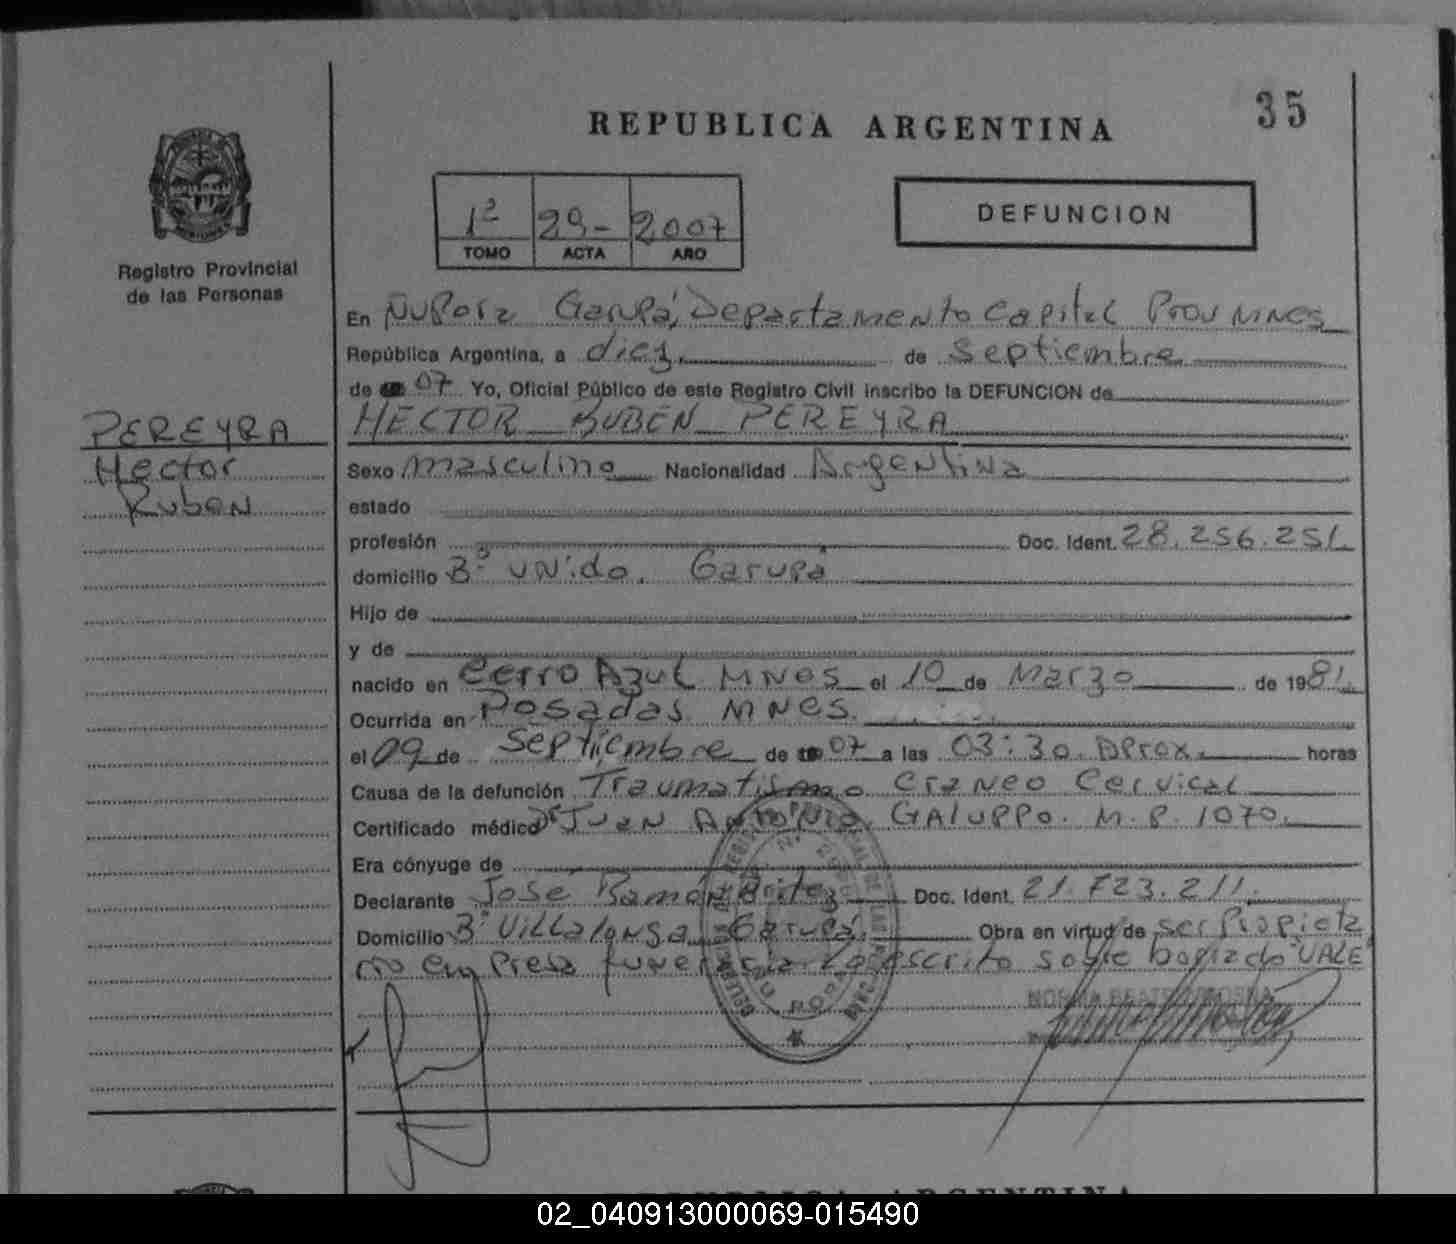 35
REPUBLICA ARGENTINA
1º 29- 2007
TOMO ACTA AÑO
DEFUNCION
Registro Provincial
de las Personas
En Garupá, Departamento Capital Prov MNes
República Argentina, a diez de Septiembre
de 07 Yo, Oficial Público de este Registro Civil inscribo la DEFUNCION de
HECTOR RUBEN PEREYRA
PEREYRA
Hector
Ruben
Sexo masculino Nacionalidad Argentina
estado
profesión Doc. Ident. 28.256.251
domicilio Bº UNido. Garupá
Hijo de
y de
nacido en Cerro Azul MNes el 10 de Marzo de 1981
Ocurrida en Posadas MNes.
el 09 de Septiembre de 07 a las 03:30 Aprox. horas
Causa de la defunción Traumatismo Craneo Cervical
Certificado médico Dr Juan Antonio GALUPPO. M.P. 1070.
Era cónyuge de
Declarante José Ramón Britez Doc. Ident. 21.723.211.
Domicilio Bº Villalonga Garupá. Obra en virtud de ser Propieta
rio empresa funeraria. Lo escrito sobre borrado "VALE"
REPUBLICA ARGENTINA
02_040913000069-015490